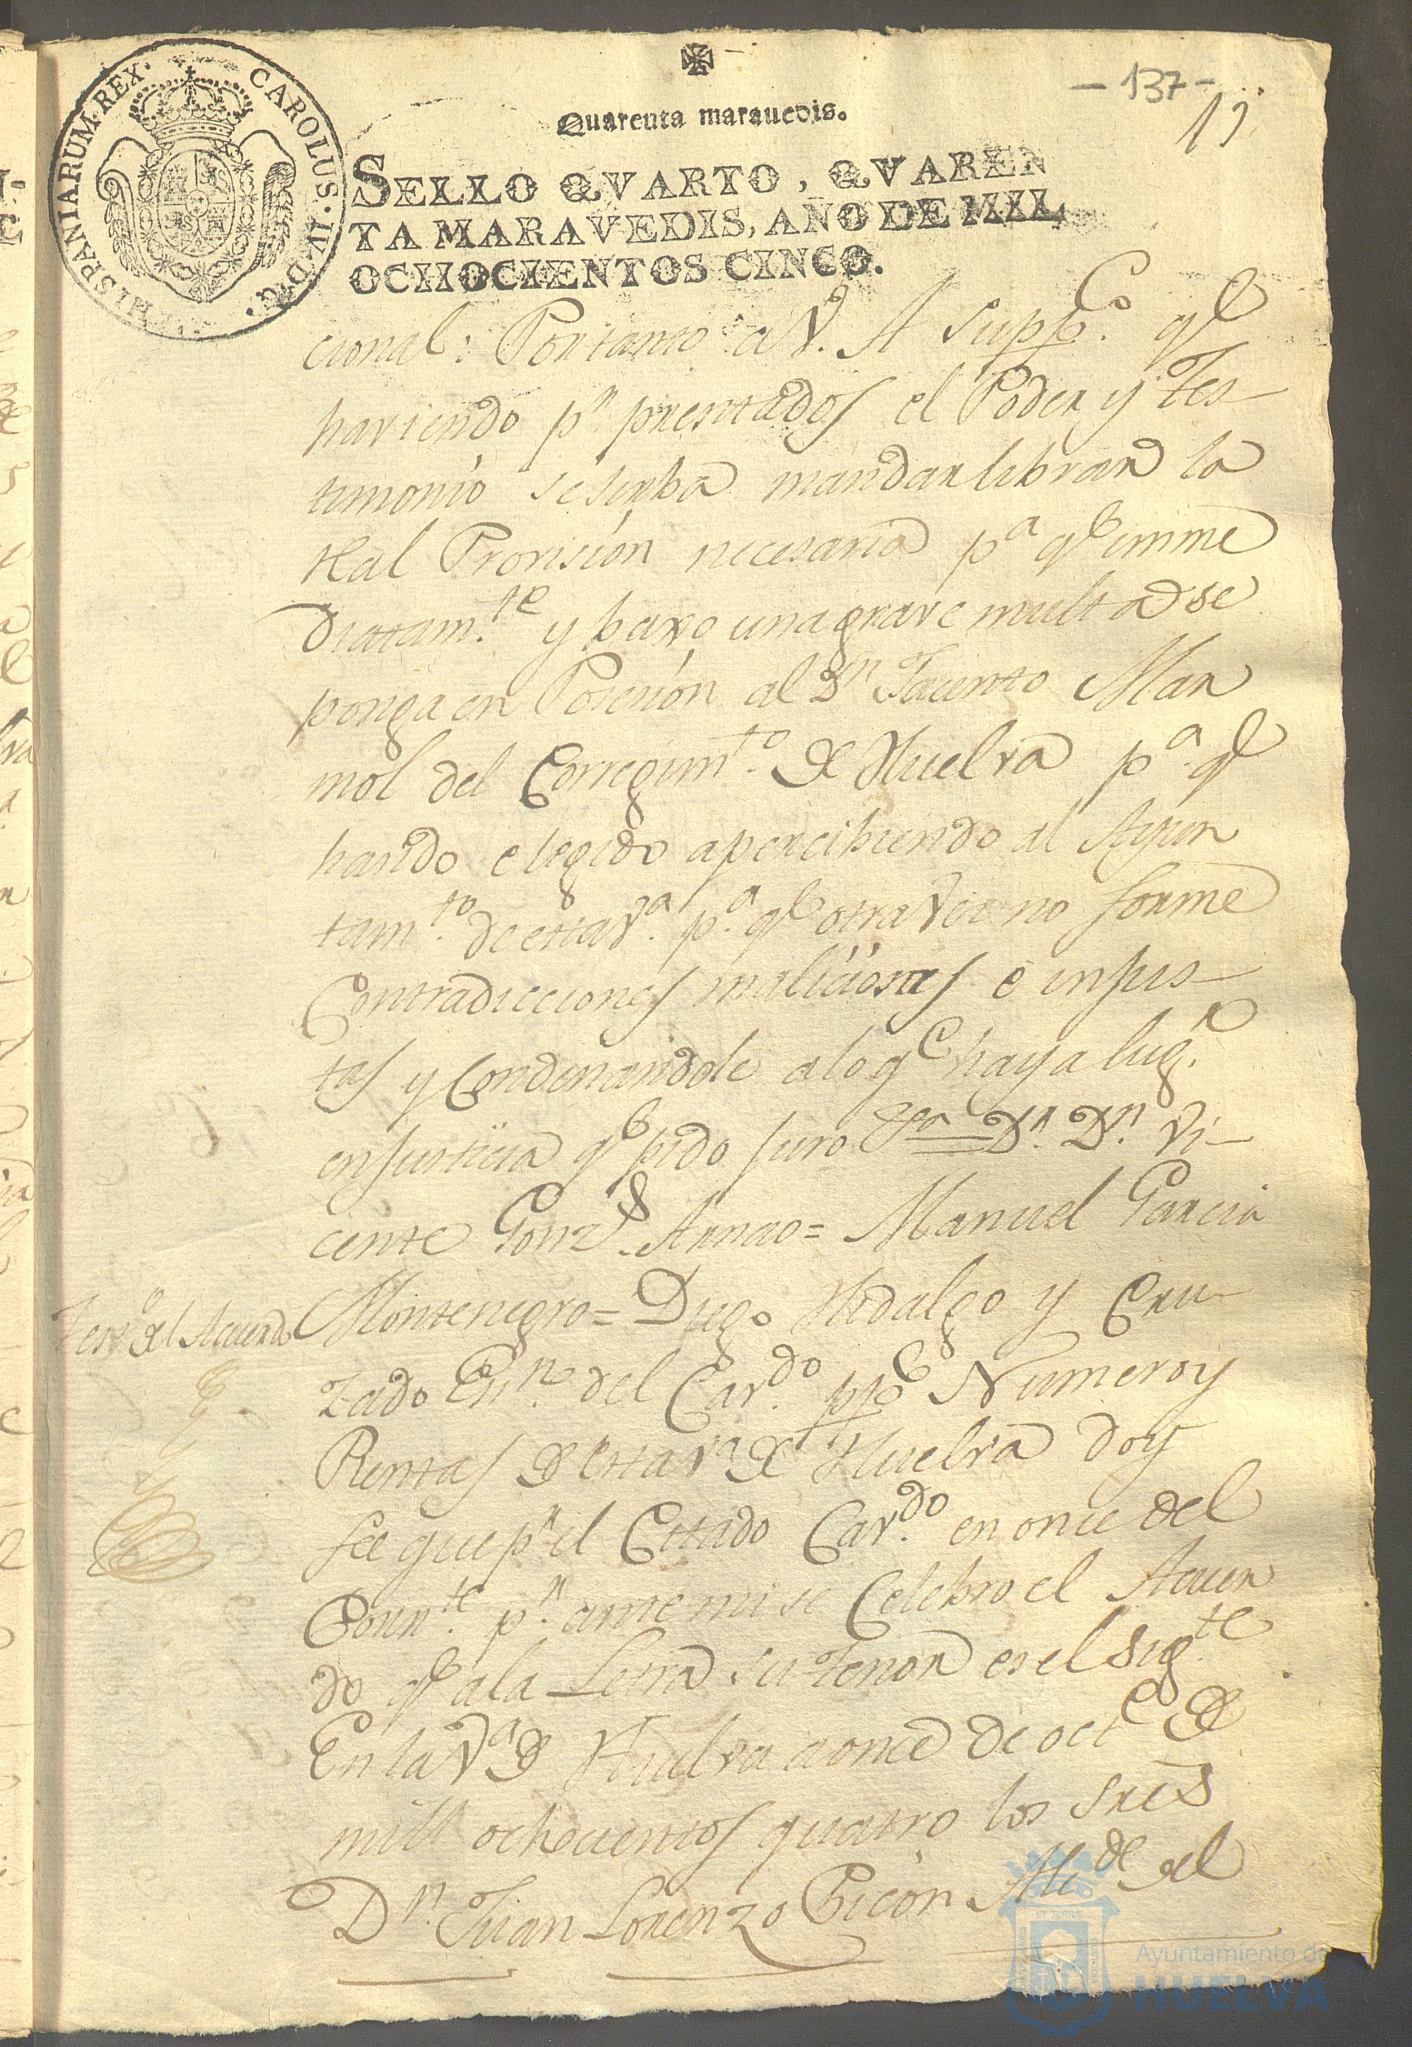 - 137 -
19
Quarenta marauedis.
SELLO QVARTO, QVAREN
TA MARAVEDIS, AÑO DE MIL
OCHOCIENTOS CINCO.
CAROLUS·IV·D·G· HISPANIARUM·REX·
cional: Portanto a V. A Supp.co qe
haviendo pr. presentados el Poder y Tes-
timonio se sirba mandar librar la
Real Provision necesaria pa qe imme
diatam.te y baxo una grave multa se
ponga en Posesion al Dn Jacinto Mar
mol del Corregim.to de Huelva pa. qe
ha sido elegido apercibiendo al Ayun
tam.to de esta Va. pa. qe otra Vez no forme
Contradicciones maliciosas e injus-
tas y Condenandole a lo qe haya lug.r
en Justicia qe pido Juro Dn. Dn. Vi-
cente Gonz.s Arnao = Manuel Garcia
Montenegro = Diego Hidalgo y Cru-
zado Esn.no del Cav.do pp.co Numero y
Rentas de esta Va de Huelva doy
fee que pr. el Cittado Cav.do en once del
Corr.te pr. ante mi se Celebro el Acuer
do qe a la Letra su tenor es el Sig.te
En la Va de Huelva a once de oct.e de
mill ochocientos quatro los Sres
Dn. Juan Lorenzo Picon Alc.de del
Testo. del Acuerdo
Ayuntamiento de
HUELVA